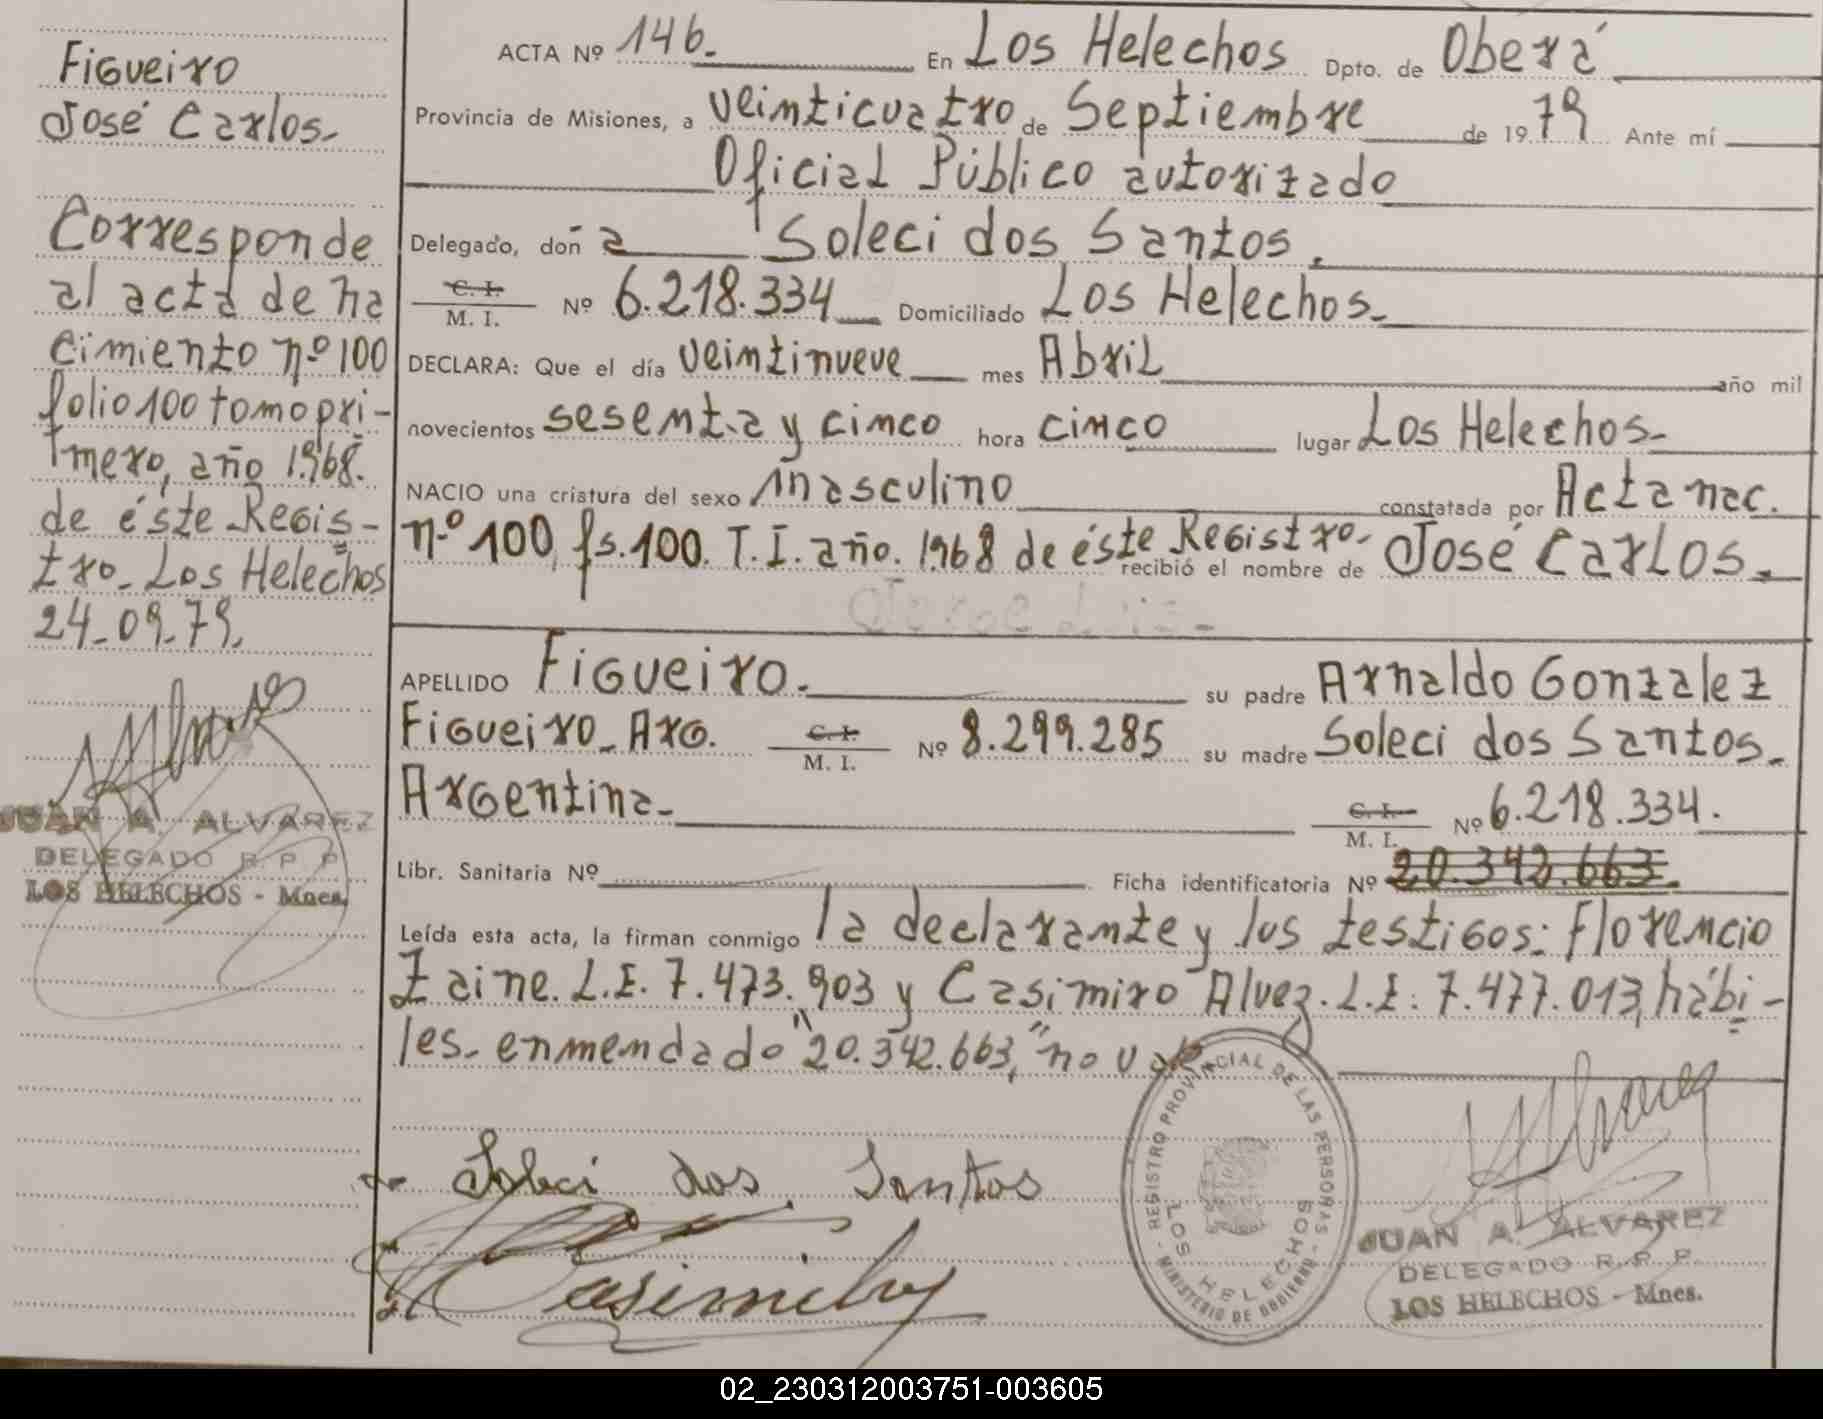 Figueiro
José Carlos.-
Corresponde
al acta de na
cimiento nº 100
folio 100 tomo pri-
mero, año 1.968.
de éste Regis-
tro. Los Helechos
24-09-79.
JUAN A. ALVAREZ
DELEGADO R. P. P.
LOS HELECHOS - Mnes.
ACTA Nº 146. En Los Helechos Dpto. de Oberá
Provincia de Misiones, a veinticuatro de Septiembre de 1979 Ante mí
Oficial Público autorizado
Delegado, doña Soleci dos Santos.
C. I.
M. I. Nº 6.218.334 Domiciliado Los Helechos.
DECLARA: Que el día veintinueve mes Abril año mil
novecientos sesenta y cinco hora cinco lugar Los Helechos.
NACIO una criatura del sexo masculino constatada por Acta nac.
nº 100, fs. 100. T. I. año. 1.968 de éste Registro. recibió el nombre de José Carlos.
APELLIDO Figueiro. su padre Arnaldo Gonzalez
Figueiro_ Arg. C. I. M. I. Nº 8.299.285 su madre Soleci dos Santos.
Argentina. C. I. M. I. Nº 6.218.334.
Libr. Sanitaria Nº Ficha identificatoria Nº 20.342.663.
Leída esta acta, la firman conmigo la declarante y los testigos: Florencio
Zaine. L.E. 7.473.903 y Casimiro Alvez. L.E. 7.477.013, hábi-
les. enmendado "20.342.663," no vale
Soleci dos Santos
REGISTRO PROVINCIAL DE LAS PERSONAS
LOS HELECHOS
MINISTERIO DE GOBIERNO
JUAN A. ALVAREZ
DELEGADO R. P. P.
LOS HELECHOS - Mnes.
02_230312003751-003605